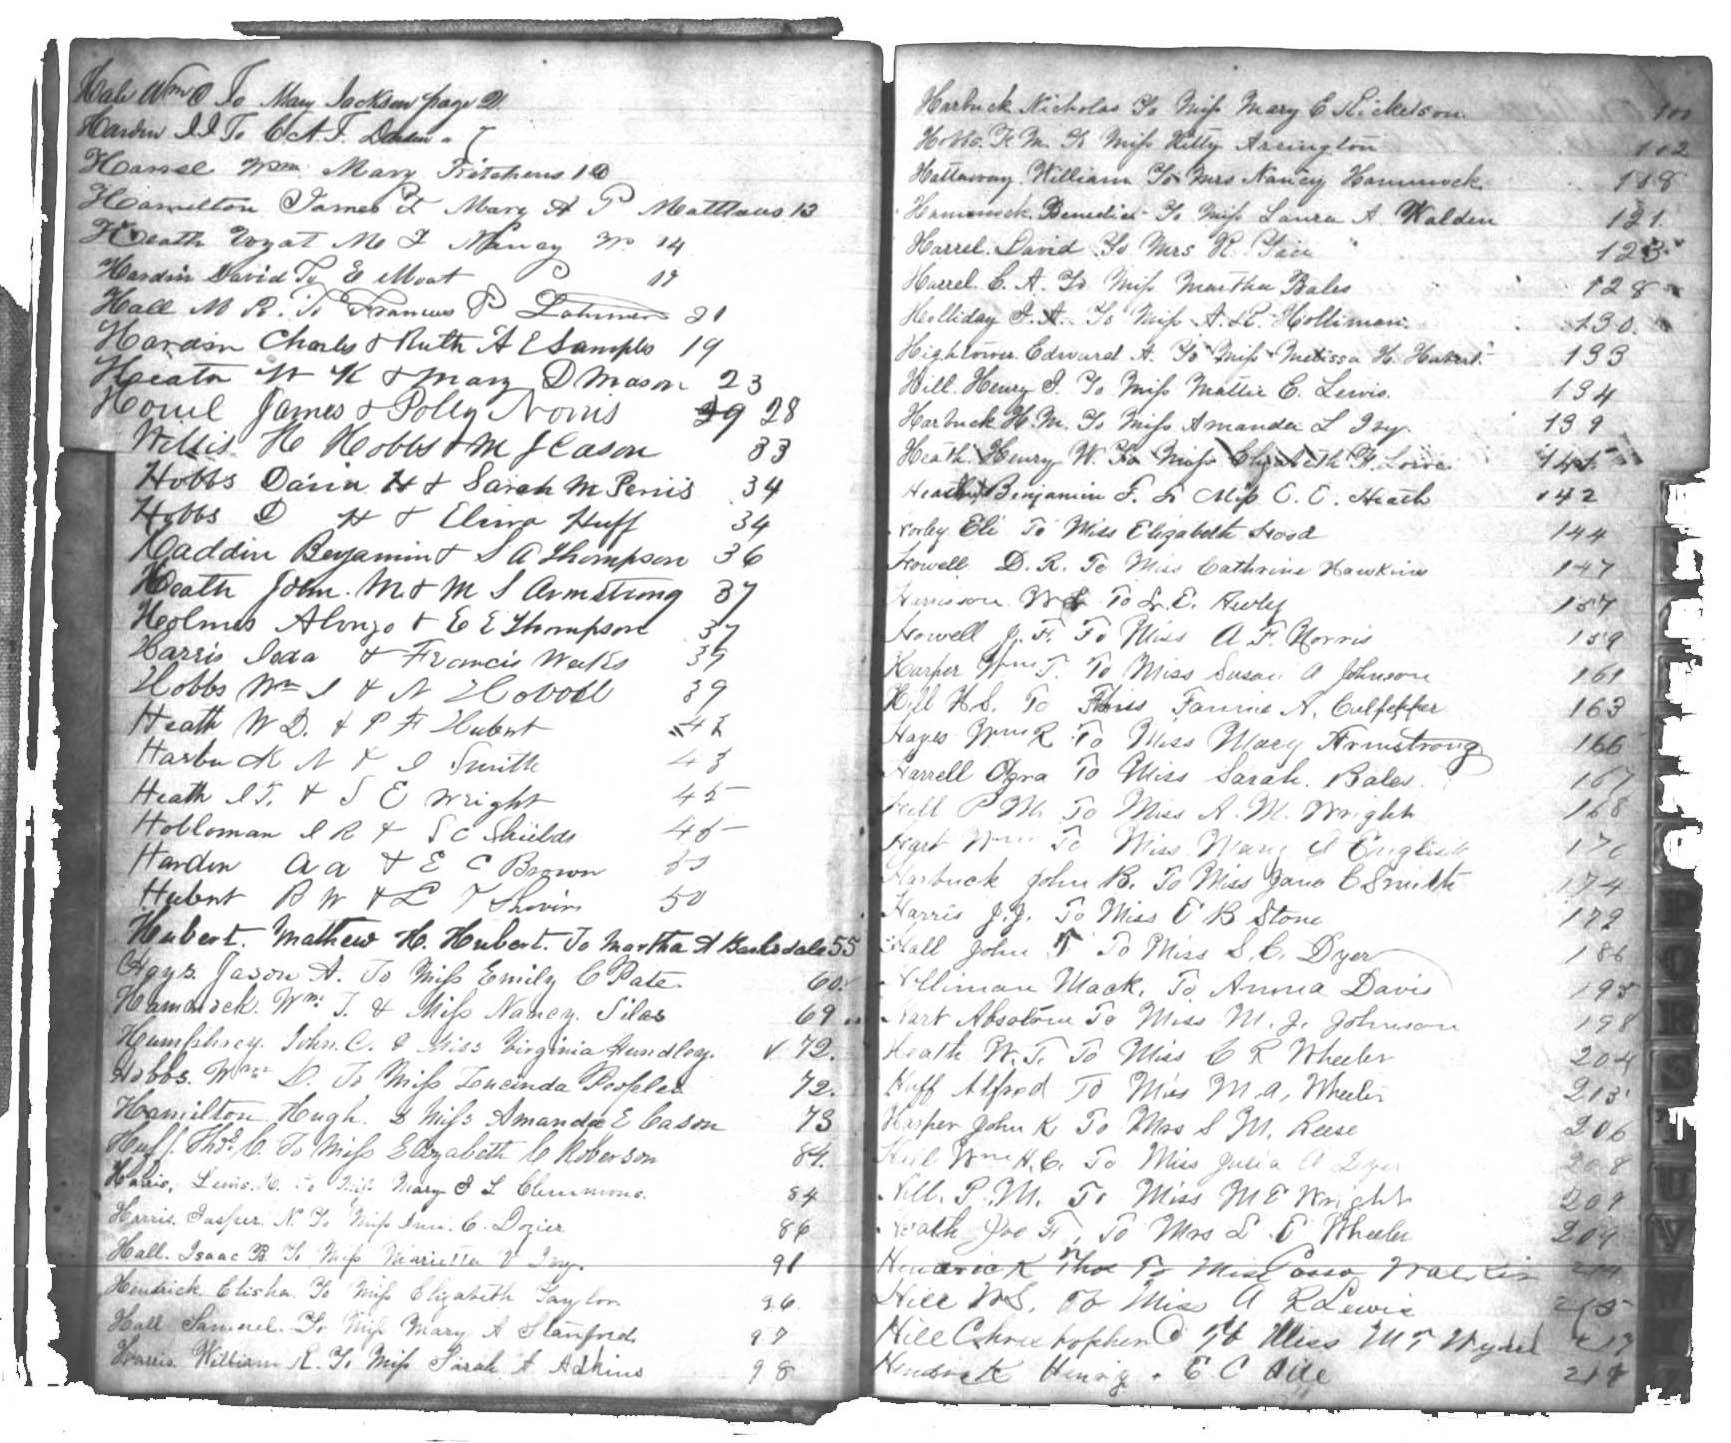 Hale Wm O To Mary Jackson page 21
Hardin I I To C A F
Harrel Wm Mary Kitchens 10
Hamilton James & Mary A P Matthews 13
Heath Wyat Nancy 14
Hardin David To E Moat 17
Hall M R. To Frances P Latimer 21
Hardin Charles & Ruth A E Samples 19
Heath W K & Mary D Mason 23
Howel James & Polly Norris 29 28
Willis H Hobbs & M J Cason 33
Hobbs H & Sarah M 34
Hobbs D H & Huff 34
Haddin Benjamin & S A Thompson 36
Heath John M & M S Armstrong 37
Holmes Alonzo & E E Thompson 37
Harris & Francis Weeks 37
Hobbs Wm I & N 39
Heath W D. & P F Hubert
Harbuck N & I Smith 43
Heath I T. & S E Wright 45
I R & S C Shields 46
Hardin A A & E C Brown
Hubert R W & L T 50
Hubert. Mathew H. Hubert. To Martha A Barksdale 55
Hays Jason A. To Miss Emily C Pate. 60
Hammock. Wm. T. & Miss Nancy. Silas 69
Humphrey. John. C. & Miss Virginia Hundley. 72.
Hobbs. Wm. D. To Miss Lucinda Peoples 72.
Hamilton Hugh. & Miss Amanda E Cason 73
Huff. Thos. C. To Miss Elizabeth C Roberson 84.
Harris. Lewis. To Miss Mary L Clemmons. 84
Harris. Jasper. N. To Miss C. Dozier 86
Hall. Isaac B. To Miss Marietta V Ivy. 91
Hendrick Elisha To Miss Elizabeth Taylor 96
Hall Samuel. To Miss Mary A Stanford 97
Harris. William R. To Miss Sarah A Adkins 98
Harbuck Nicholas To Miss Mary C Rickelson 100
Hobbs. F. M. To Miss Kitty Arrington 112
Hattaway. William To Mrs Nancy Hammock. 118
Hammock. Benedict To Miss Laura A. Walden 121
Harrel. David To Mrs R. 123
Harrel. C. A. To Miss Martha Bales 128
Holliday To Miss A. R. Holliman. 130
Hightower. Edward A. To Miss Melissa H. Hubert. 133
Hill. Henry I. To Miss Mattie C. Lewis. 134
Harbuck H. M. To Miss Amanda L Ivy. 139
Heath. Henry W. To Miss Elizabeth F. Lowe 141
Heath Benjamin F. To Miss C. C. Heath 142
Norley Eli To Miss Elizabeth Hood 144
Howell D. R. To Miss Cathrine Hawkins 147
Harrison To L. E. 157
Howell J. F. To Miss A. F. Norris 159
Harper Wm T. To Miss Susan A Johnson 161
Hill H. S. To Miss Fannie A. Culpepper 163
Hayes Wm R To Miss Mary Armstrong 166
Harrell Ozra To Miss Sarah. Bales. 167
Hill P M. To Miss A. M. Wright 168
Hart Wm To Miss Mary A English 170
Harbuck John B. To Miss Jane C Smith 174
Harris J. J. To Miss E B Stone 179
Hall John T To Miss S. C. Dyer 186
Holliman Mack. To Anna Davis 195
Hart Absolom To Miss M. J. Johnson 198
Heath W. T. To Miss C R Wheeler 204
Huff Alfred To Miss M. A. Wheeler 213
Harper John K To Mrs S. M. Reese 206
Hill Wm H. C. To Miss Julia A Dyer 208
Hill. P. M. To Miss M E Wright 209
Heath Joe F. To Mrs L. E Wheeler 209
Hendrick Thos To Miss
Hill W S. To Miss A R Lewis 215
Hill Christopher C To Miss M T
Hendrick Henry. E. C Hill 218
P
Q
R
S
T
U
V
W